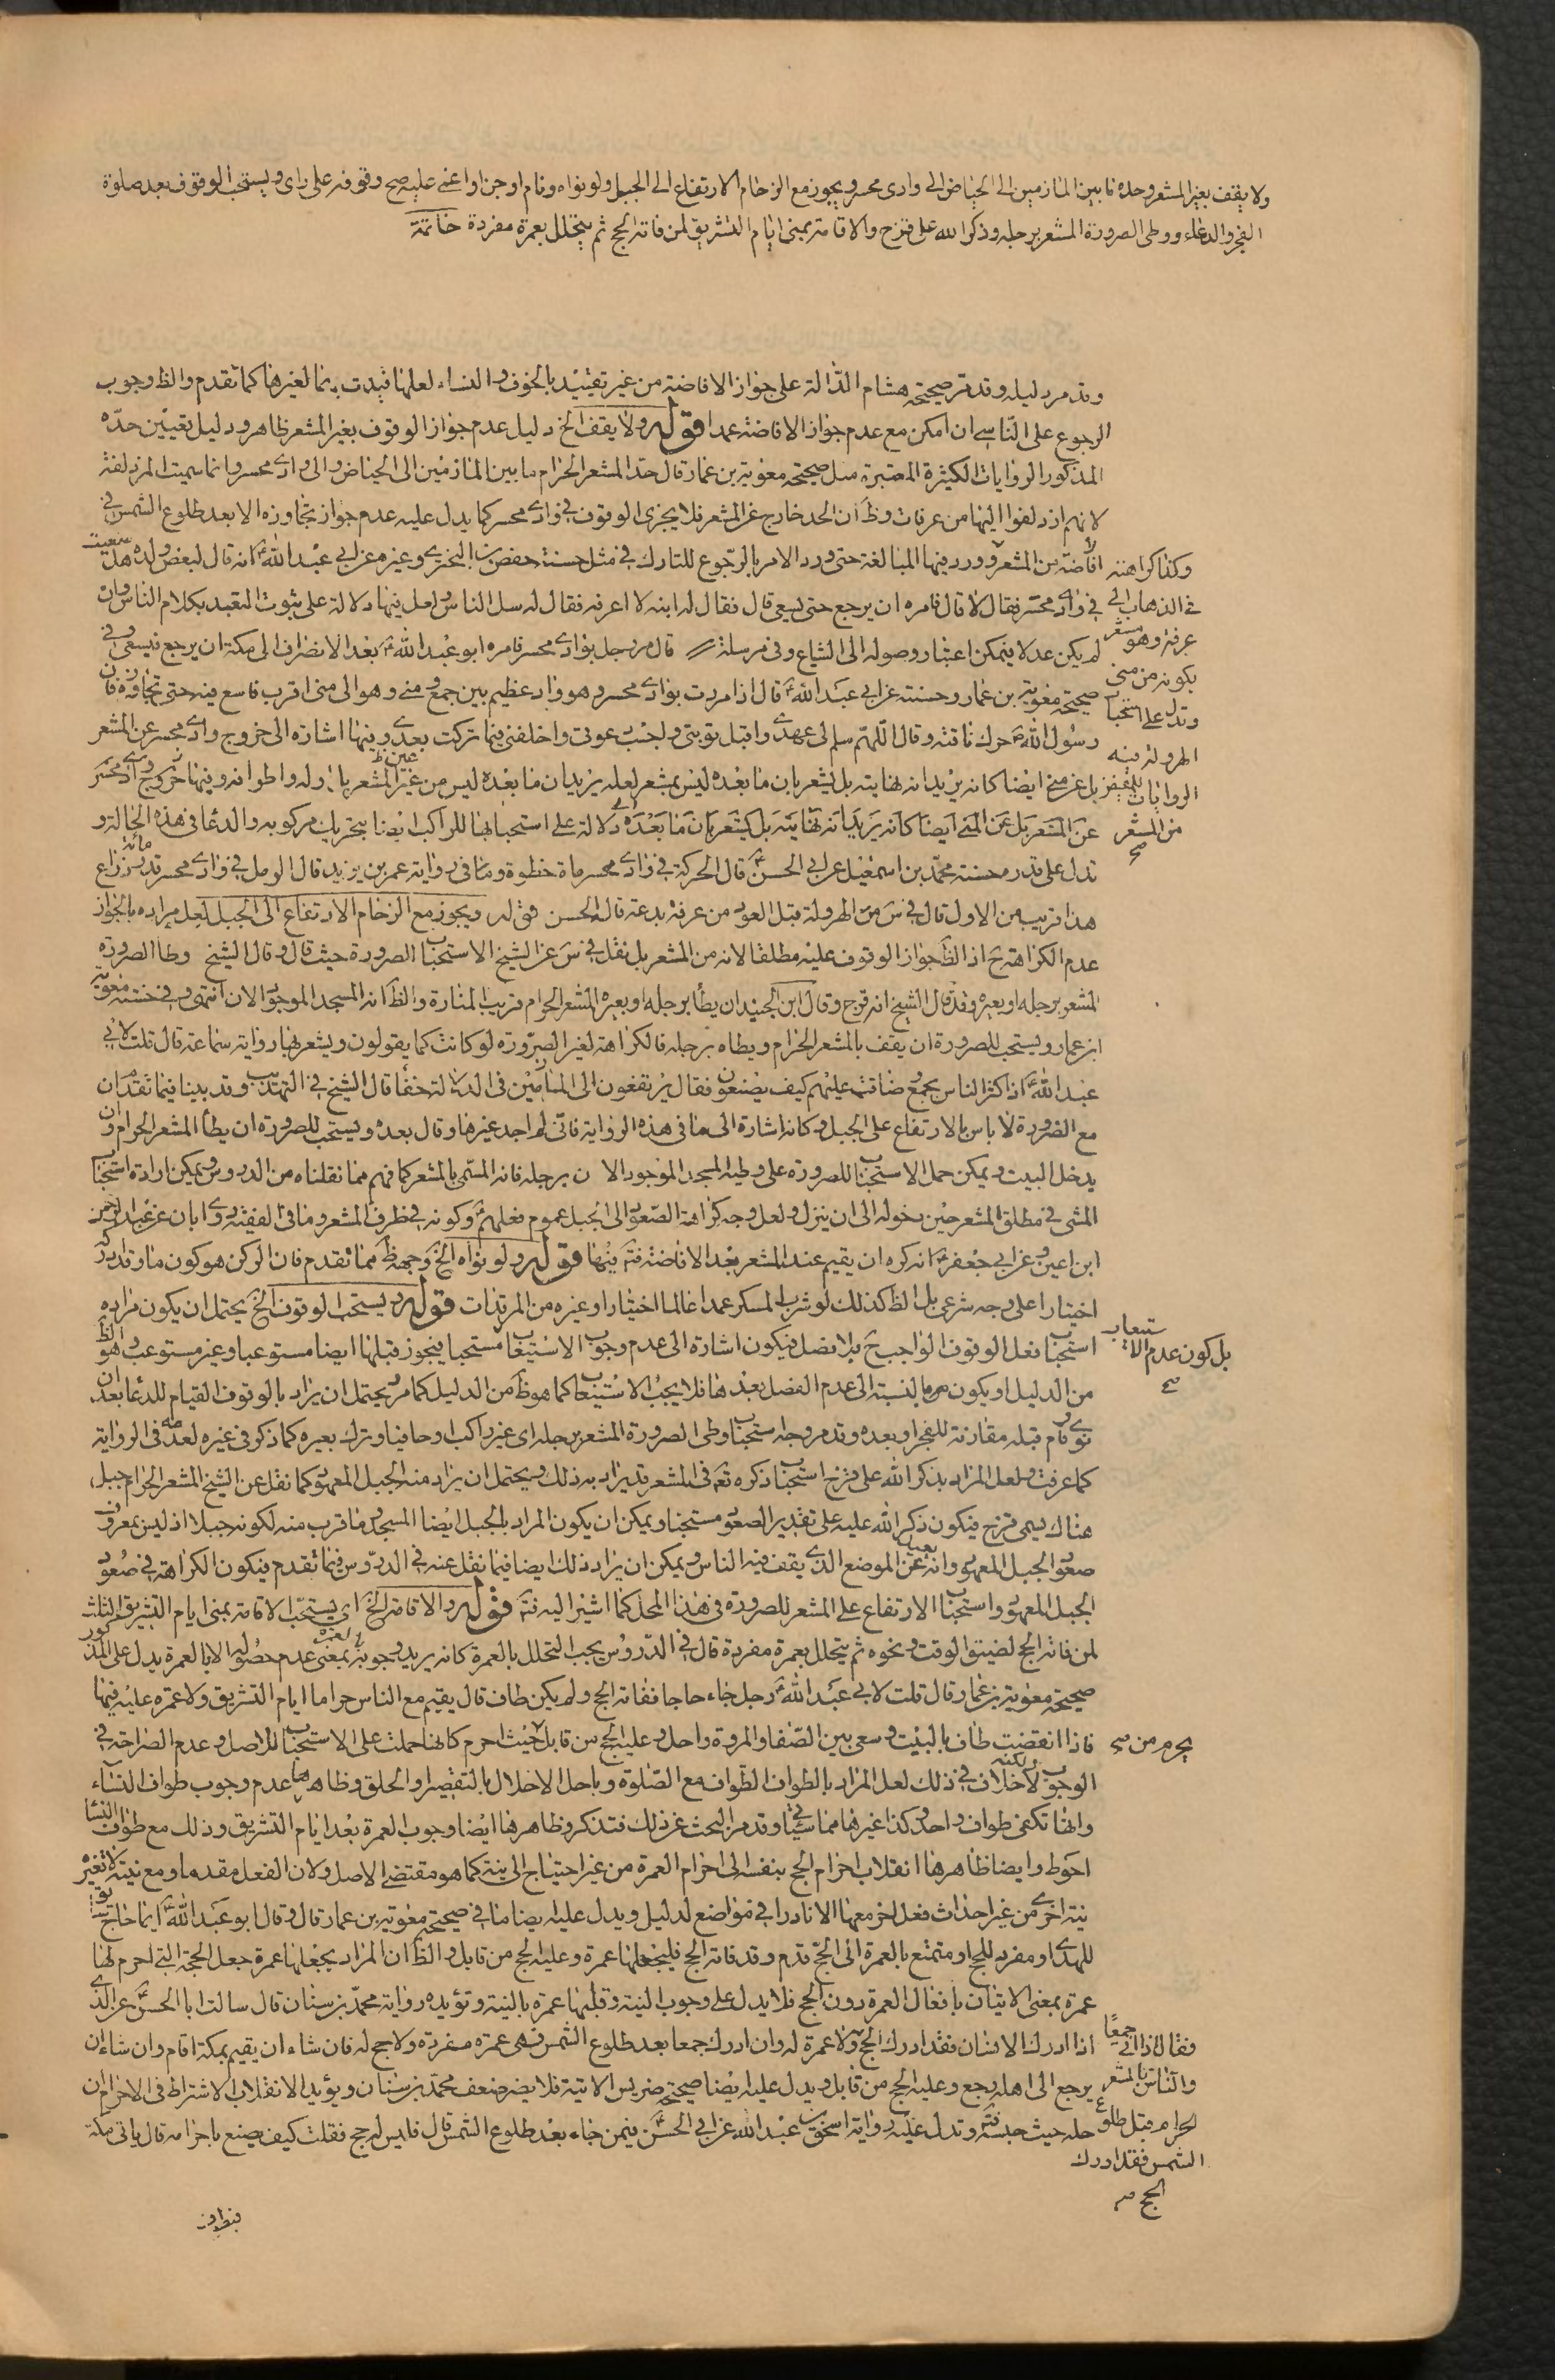 ولا يقف بغير المشعر وحده ما بين المازمين الى الحياض الى وادى محسر ويجوز مع الزحام الارتفاع الى الجبل ولو نواه ونام او جن او اغمى عليه صح وقوفه على راى ويستحب الوقوف بعد صلوة
الفجر والدعاء ووطى الصرورة المشعر برجله وذكر الله على قزح والاقامة بمنى ايام التشريق لمن فاته الحج ثم يتحلل بعمرة مفردة خاتمة
وقد مر دليله وقد مر صحيحة هشام الدالة على جواز الافاضة من غير تقييد بالخوف والنساء لعلها قيدت بما لغيرها كما تقدم والظ وجوب
الرجوع على الناسى ان امكن مع عدم جواز الافاضة عمدا قوله ولا يقف الخ دليل عدم جواز الوقوف بغير المشعر ظاهر ودليل تعيين حده
المذكور الروايات الكثيرة المعتبرة مثل صحيحة معوية بن عمار قال حد المشعر الحرام ما بين المازمين الى الحياض والى وادى محسر وانما سميت المزدلفة
لانهم ازدلفوا اليها من عرفات وظ ان الحد خارج عن المشعر فلا يجزى الوقوف فى وادى محسر كما يدل عليه عدم جواز تجاوزه الا بعد طلوع الشمس فى
وكذا كراهته افاضة من المشعر وورد فيها المبالغة حتى ورد الامر بالرجوع للتارك فى مثل حسنة حفص بن البخترى وغيره عن ابى عبد الله ع انه قال لبعض ولده هل سعيت
فى الذهاب الى فى وادى محسر فقال لا قال فامره ان يرجع حتى يسعى قال فقال له ابنه لا اعرفه فقال له سل الناس ولعل فيها دلالة على ثبوت التعبد بكلام الناس وان
عرفة وهو مشعر لم يكن عدلا فيمكن اعتبار وصوله الى الشياع وفى مرسلة قال مر رجل بوادى محسر فامره ابو عبد الله ع بعد الانصراف الى مكة ان يرجع فيسعى وفى
بكونه من منى صحيحة معوية بن عمار وحسنته عن ابى عبد الله ع قال اذا مررت بوادى محسر وهو واد عظيم بين جمع ومنى وهو الى منى اقرب فاسع فيه حتى تجاوزه فان
وتدل على استحباب رسول الله ص حرك ناقته وقال اللهم سلم لى عهدى واقبل توبتى واجب دعوتى واخلفنى فيما تركت بعدى وفيها اشارة الى خروج وادى محسر عن المشعر
الهرولة فيه
الروايات بل عن منى ايضا كانه يريد انه نهايته بل يشعر بان ما بعده ليس بمشعر لعله يريد ان ما بعده ليس من عين المشعر
من المشعر صح عن المشعر بل عن المنى ايضا كانه يريد انه نهايته بل يشعر بان ما بعده دلالة على استحبابها للراكب ايضا بتحريك مركوبه والدعا فى هذه الحالة و
تدل على قدره حسنة محمد بن اسمعيل عن ابى الحسن ع قال الحركة فى وادى محسر ماة خطوة وما فى رواية عمر بن يزيد قال الرمل فى وادى محسر قدر مائة ذراع
هذا قريب من الاول قال فى س من الهرولة قبل العود من عرفة بدعة قاله الحسن قوله ويجوز مع الزحام الارتفاع الى الجبل لعل مراده بالجواز
عدم الكراهة ح اذ الظ جواز الوقوف عليه مطلقا لانه من المشعر بل نقل فى س عن الشيخ الاستحباب للصرورة حيث قال وقال الشيخ وطا الصرورة
المشعر برجله او بعيره وقد قال الشيخ انه قزح وقال ابن الجنيد ان يطأ برجله او بعيره المشعر الحرام قريب المنارة والظ انه المسجد الموجود الان انتهى وفى حسنة معوية
ابن عمار ويستحب للصرورة ان يقف بالمشعر الحرام ويطاه برجله فالكراهة لغير الصرورة لو كانت كما يقولون ويشعر بها رواية سماعة قال قلت لابى
عبد الله ع اذا كثر الناس بجمع ضاقت عليهم كيف يصنعون فقال يرتفعون الى المازمين فى الدلالة خفأ قال الشيخ فى التهذيب وقد بينا فيما تقدم ان
مع الضرورة لا باس بالارتفاع على الجبل وكانه اشارة الى ما فى هذه الرواية فانى لم اجد غيرها وقال بعده ويستحب للصرورة ان يطأ المشعر الحرام وان
يدخل البيت ويمكن حمل الاستحباب للصرورة على وطيه المسجد الموجود الان برجله فانه المسمى بالمشعر كما فهم مما نقلناه من الدروس ويمكن ارادة استحباب
المشى فى مطلق المشعر حين دخوله الى ان ينزل ولعل وجه كراهة الصعود الى الجبل عموم فعلهم ع وكونه فى طرف المشعر وما فى الفقيه روى ابان عن عبد الرحمن
ابن اعين عن ابى جعفر ع انه كره ان يقيم عند المشعر بعد الافاضة فتم فيها قوله ولو نواه الخ وجهه ظ مما تقدم فان الركن هو كون ما وقد ادركه
اختيارا على وجه شرعى بل الظ كذلك لو شرب المسكر عمدا عالما اختيارا وغيره من المرتدات قوله ويستحب الوقوف الخ يحتمل ان يكون مراده
بل كون عدم الاستيعاب صح استحباب فعل الوقوف الواجب ح فالافضل فيكون اشارة الى عدم وجوب الاستيعاب مستحبا فيجوز قبلها ايضا مستوعبا وغير مستوعب وهو الظ
من الدليل او يكون بالنسبة الى عدم الفضل بعدها فلا يجب الاستيعاب كما هو ظ من الدليل كما مر ويحتمل ان يراد بالوقوف القيام للدعا بعد ان
نوى ونام قبله مقارنة للفجر او بعده وقد مر وجه استحباب وطى الصرورة المشعر برجله اى غير راكب او حافيا وترك بعيره كما ذكر فى غيره لعدمه فى الرواية
كما عرفت ولعل المراد بذكر الله على قزح استحباب ذكره تعه فى المشعر قد يراد به ذلك ويحتمل ان يراد منه الجبل المعهود كما نقل عن الشيخ المشعر الحرام جبل
هناك يسمى قزح فيكون ذكر الله عليه على تقدير الصعود مستحبا ويمكن ان يكون المراد بالجبل ايضا المسجد وما قرب منه لكونه جبلا اذ ليس بمعروف
صعود الجبل المعهود وانه بعيد عن الموضع الذى يقف فيه الناس ويمكن ان يراد ذلك ايضا فيما نقل عنه فى الدروس فيما تقدم فيكون الكراهة فى صعود
الجبل المعهود واستحباب الارتفاع على المشعر للصرورة فى هذا المحل كما اشير اليه فتم قوله والاقامة الخ اى يستحب الاقامة بمنى ايام التشريق الثلث
لمن فاته الحج لضيق الوقت ونحوه ثم يتحلل بعمرة مفردة قال فى الدروس يجب التحلل بالعمرة كانه يريد وجوبه بمعنى عدم حصوله الا بالعمرة يدل على المذكور
صحيحة معوية بن عمار قال قلت لابى عبد الله ع رجل جاء حاجا ففاته الحج ولم يكن طاف قال يقيم مع الناس حراما ايام التشريق ولا عمرة عليه فيها
يحرم من صح فاذا انقضت طاف بالبيت وسعى بين الصفا والمروة واحل وعليه الحج من قابل حيث احرم كانها حملت على الاستحباب للاصل وعدم الصراحة فى
الوجوب ولكنه لا خلاف فى ذلك لعل المراد بالطواف الطواف مع الصلوة وباحل الاحلال بالتقصير او الحلق وظاهرها عدم وجوب طواف النساء
وانها تكفى طواف واحد وكذا غيرها مما سياتى وقد مر البحث عن ذلك فتذكر وظاهرها ايضا وجوب العمرة بعد ايام التشريق وذلك مع طواف النسا
احوط وايضا ظاهرها انقلاب احرام الحج بنفسه الى احرام العمرة من غير احتياج الى نية كما هو مقتضى الاصل ولان الفعل مقدم او مع نيته لا تغير
نية اخرى من غير احداث فعل اخر معها الا نادرا فى مواضع لدليل ويدل عليه ايضا ما فى صحيحة معوية بن عمار قال وقال ابو عبد الله ع ايما حاج سائق
للهدى او مفرد للحج او متمتع بالعمرة الى الحج قدم وقد فاته الحج فليجعلها عمرة وعليه الحج من قابل والظ ان المراد بجعلها عمرة جعل الحجة التى احرم لها
عمرة بمعنى الاتيان بافعال العمرة دون الحج فلا يدل على وجوب النية وقلبها عمرة بالنية وتؤيده رواية محمد بن سنان قال سالت ابا الحسن ع عن الذى
فقال اذا اتى جمعا اذا ادرك الانسان فقد ادرك الحج ولا عمرة له وان ادرك جمعا بعد طلوع الشمس فهى عمرة مفردة ولا حج له فان شاء ان يقيم بمكة اقام وان شاء ان
والناس بالمشعر يرجع الى اهله رجع وعليه الحج من قابل ويدل عليه ايضا صحيحة ضريس الاتية فلا يضر ضعف محمد بن سنان ويؤيد الانقلاب الاشتراط فى الاحرام ان
الحرام قبل طلوع حله حيث حبسه فتم وتدل عليه رواية اسحق بن عبد الله عن ابى الحسن ع فيمن جاء بعد طلوع الشمس قال فليس له حج فقلت كيف يصنع باحرامه قال ياتى مكة
الشمس فقد ادرك
الحج صح
فيطوف